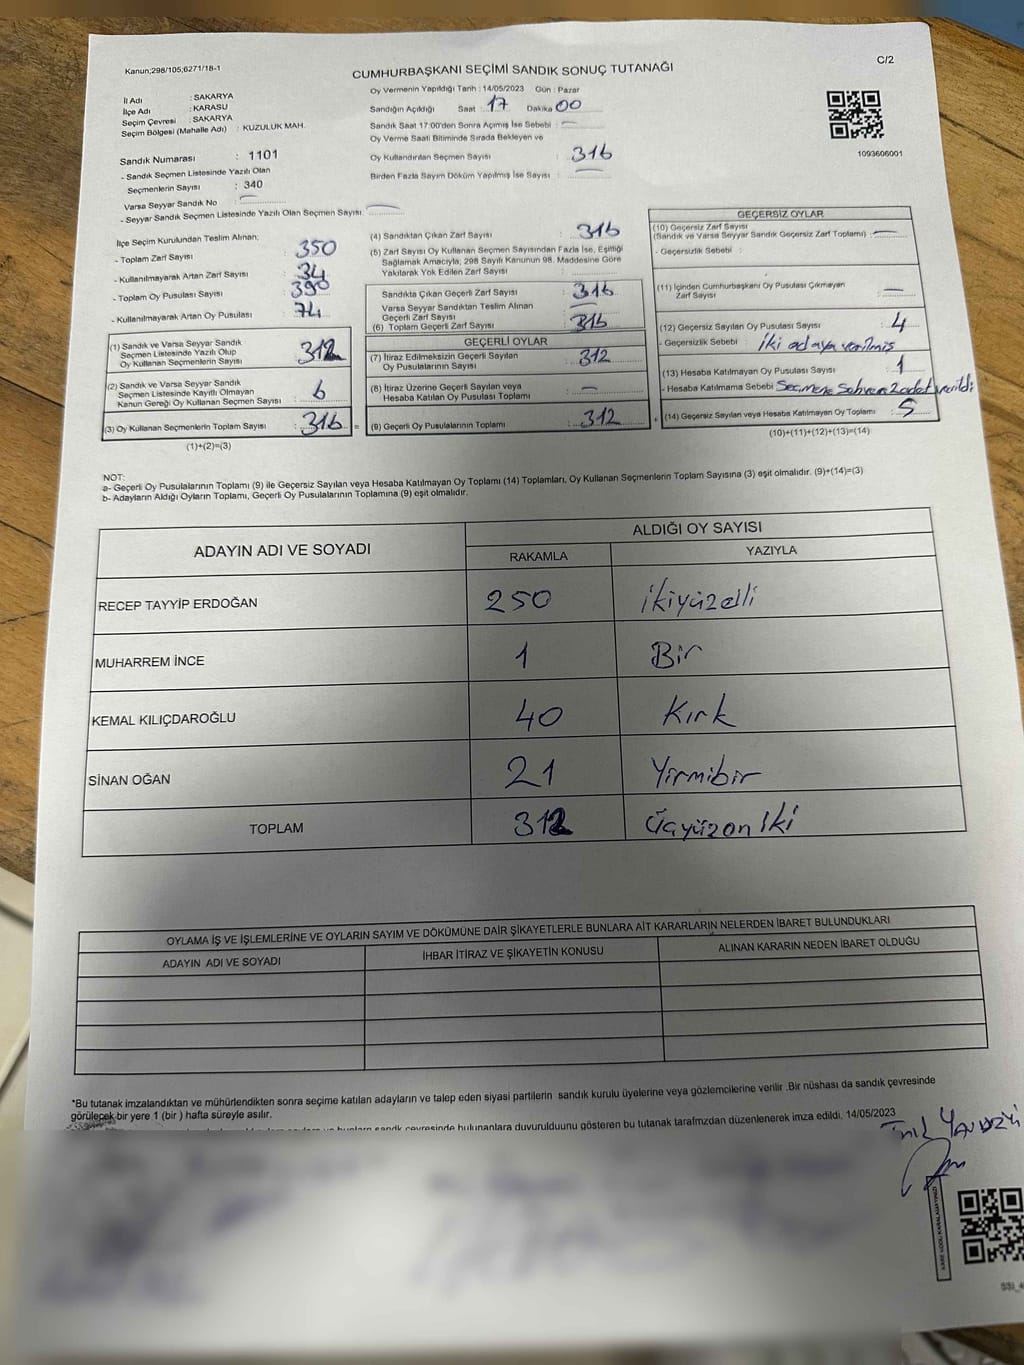 Kanun;298/105;6271/18-1
C/2
CUMHURBAŞKANI SEÇİMİ SANDIK SONUÇ TUTANAĞI
İl Adı : SAKARYA
İlçe Adı : KARASU
Seçim Çevresi : SAKARYA
Seçim Bölgesi (Mahalle Adı) : KUZULUK MAH.
Sandık Numarası : 1101
- Sandık Seçmen Listesinde Yazılı Olan
Seçmenlerin Sayısı : 340
Varsa Seyyar Sandık No :
- Seyyar Sandık Seçmen Listesinde Yazılı Olan Seçmen Sayısı.
Oy Vermenin Yapıldığı Tarih : 14/05/2023 Gün : Pazar
Sandığın Açıldığı Saat : 17 Dakika 00
Sandık Saat 17:00'den Sonra Açılmış İse Sebebi : —
Oy Verme Saati Bitiminde Sırada Bekleyen ve
Oy Kullandırılan Seçmen Sayısı : 316
Birden Fazla Sayım Döküm Yapılmış İse Sayısı : —
1093606001
İlçe Seçim Kurulundan Teslim Alınan;
- Toplam Zarf Sayısı : 350
- Kullanılmayarak Artan Zarf Sayısı : 34
- Toplam Oy Pusulası Sayısı : 390
- Kullanılmayarak Artan Oy Pusulası : 74
(1) Sandık ve Varsa Seyyar Sandık
Seçmen Listesinde Yazılı Olup
Oy Kullanan Seçmenlerin Sayısı : 312
(2) Sandık ve Varsa Seyyar Sandık
Seçmen Listesinde Kayıtlı Olmayan
Kanun Gereği Oy Kullanan Seçmen Sayısı : 6
(3) Oy Kullanan Seçmenlerin Toplam Sayısı : 316 =
(1)+(2)=(3)
(4) Sandıktan Çıkan Zarf Sayısı : 316
(5) Zarf Sayısı Oy Kullanan Seçmen Sayısından Fazla İse, Eşitliği
Sağlamak Amacıyla, 298 Sayılı Kanunun 98. Maddesine Göre
Yakılarak Yok Edilen Zarf Sayısı :
Sandıkta Çıkan Geçerli Zarf Sayısı : 316
Varsa Seyyar Sandıktan Teslim Alınan
Geçerli Zarf Sayısı : —
(6) Toplam Geçerli Zarf Sayısı : 316
GEÇERLİ OYLAR
(7) İtiraz Edilmeksizin Geçerli Sayılan
Oy Pusulalarının Sayısı : 312
(8) İtiraz Üzerine Geçerli Sayılan veya
Hesaba Katılan Oy Pusulası Toplamı : —
(9) Geçerli Oy Pusulalarının Toplamı : 312 +
GEÇERSİZ OYLAR
(10) Geçersiz Zarf Sayısı
(Sandık ve Varsa Seyyar Sandık Geçersiz Zarf Toplamı) : —
- Geçersizlik Sebebi :
(11) İçinden Cumhurbaşkanı Oy Pusulası Çıkmayan
Zarf Sayısı : —
(12) Geçersiz Sayılan Oy Pusulası Sayısı : 4
- Geçersizlik Sebebi : İki adaya verilmiş
(13) Hesaba Katılmayan Oy Pusulası Sayısı : 1
- Hesaba Katılmama Sebebi Seçmene Sehven 2 adet verildi
(14) Geçersiz Sayılan veya Hesaba Katılmayan Oy Toplamı : 5
(10)+(11)+(12)+(13)=(14)
NOT:
a- Geçerli Oy Pusulalarının Toplamı (9) ile Geçersiz Sayılan veya Hesaba Katılmayan Oy Toplamı (14) Toplamları, Oy Kullanan Seçmenlerin Toplam Sayısına (3) eşit olmalıdır. (9)+(14)=(3)
b- Adayların Aldığı Oyların Toplamı, Geçerli Oy Pusulalarının Toplamına (9) eşit olmalıdır.
ADAYIN ADI VE SOYADI
ALDIĞI OY SAYISI
RAKAMLA YAZIYLA
RECEP TAYYİP ERDOĞAN 250 ikiyüzelli
MUHARREM İNCE 1 Bir
KEMAL KILIÇDAROĞLU 40 Kırk
SİNAN OĞAN 21 Yirmibir
TOPLAM 312 Üçyüzoniki
OYLAMA İŞ VE İŞLEMLERİNE VE OYLARIN SAYIM VE DÖKÜMÜNE DAİR ŞİKAYETLERLE BUNLARA AİT KARARLARIN NELERDEN İBARET BULUNDUKLARI
ADAYIN ADI VE SOYADI İHBAR İTİRAZ VE ŞİKAYETİN KONUSU ALINAN KARARIN NEDEN İBARET OLDUĞU
*Bu tutanak imzalandıktan ve mühürlendikten sonra seçime katılan adayların ve talep eden siyasi partilerin sandık kurulu üyelerine veya gözlemcilerine verilir .Bir nüshası da sandık çevresinde
görülecek bir yere 1 (bir ) hafta süreyle asılır.
sandık çevresinde bulunanlara duyurulduunu gösteren bu tutanak tarafımızdan düzenlenerek imza edildi. 14/05/2023